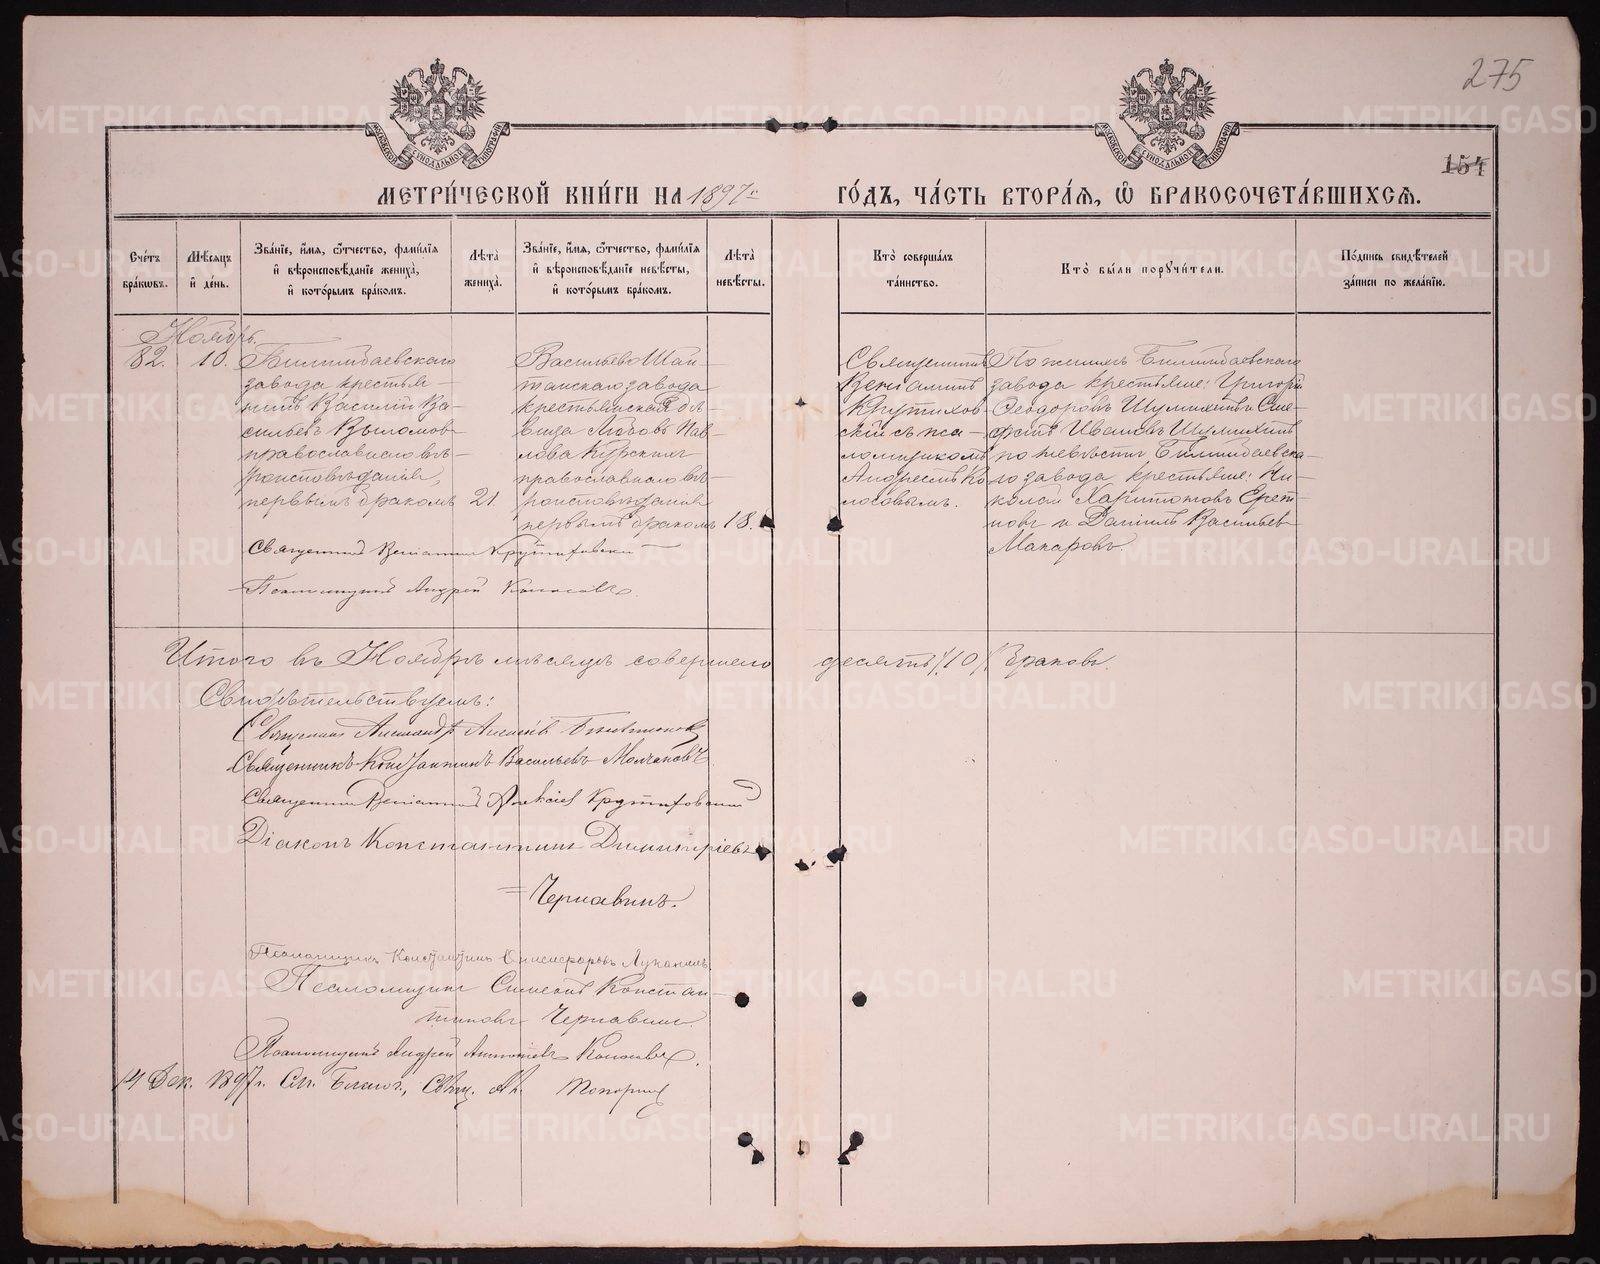 275
154
МОСКОВСКОЙ СѴНОДАЛЬНОЙ ТИПОГРАФІИ
МОСКОВСКОЙ СѴНОДАЛЬНОЙ ТИПОГРАФІИ
МЕТРИ́ЧЕСКОЙ КНИ́ГИ НА 1897й ГО́ДЪ, ЧА́СТЬ ВТОРА́Я, Ѽ БРАКОСОЧЕТА́ВШИХСѦ.
Сче́тъ бра́кωвъ.
Мѣ́сяцъ и҆ де́нь.
Зва́нїе, и҆́мя, ѻ҆́тчество, фами́лїя и҆ вѣроисповѣ́данїе жениха̀, и҆ кото́рымъ бра́комъ.
Лѣ́та жениха̀.
Зва́нїе, и҆́мя, ѻ҆́тчество, фами́лїя и҆ вѣроисповѣ́данїе невѣ́сты, и҆ кото́рымъ бра́комъ.
Лѣ́та невѣ́сты.
Кто̀ соверша́лъ та́инство.
Кто̀ бы́ли порꙋчи́тели.
По́дпись свидѣ́телей за́писи по жела́нїю.
Ноябрь.
82.
10.
Билимбаевскаго
завода крестья-
нинъ Василій Ва-
сильевъ
православнаго вѣ-
роисповѣданія,
первымъ бракомъ
21.
Васильево-Шай-
танскаго завода
крестьянская дѣ-
вица Любовь Пав-
лова
православнаго вѣ-
роисповѣданія
первымъ бракомъ
18.
Священникъ
Веніаминъ
Крутихов-
скій съ пса-
ломщикомъ
Андреемъ Ко-
лосовымъ.
По женихѣ Билимбаевскаго
завода крестьяне: Григорій
Ѳеодоровъ Шумихинъ и
Ивановъ Шумихинъ
по невѣстѣ Билимбаевска-
го завода крестьяне: Ни-
колай Харитоновъ
и Даніилъ Васильевъ
Макаровъ.
Священникъ Веніаминъ Крутиховскій
Псаломщикъ Андрей Колосовъ.
Итого въ Ноябрѣ мѣсяцѣ совершено десять /10/ браковъ.
Свидѣтельствуемъ:
Священникъ Александръ
Священникъ Константинъ Васильевъ Молчановъ
Священникъ Веніаминъ Алексіев Крутиховскій
Діаконъ Константинъ Димитріевъ
Чернавинъ.
Псаломщикъ Константинъ Луканинъ.
Псаломщикъ Симеонъ Констан-
тиновъ Чернавинъ.
Псаломщикъ Андрей Колосовъ.
14 Дек. 1897 г. Благоч., Свящ. Топорковъ
METRIKI.GASO-URAL.RU